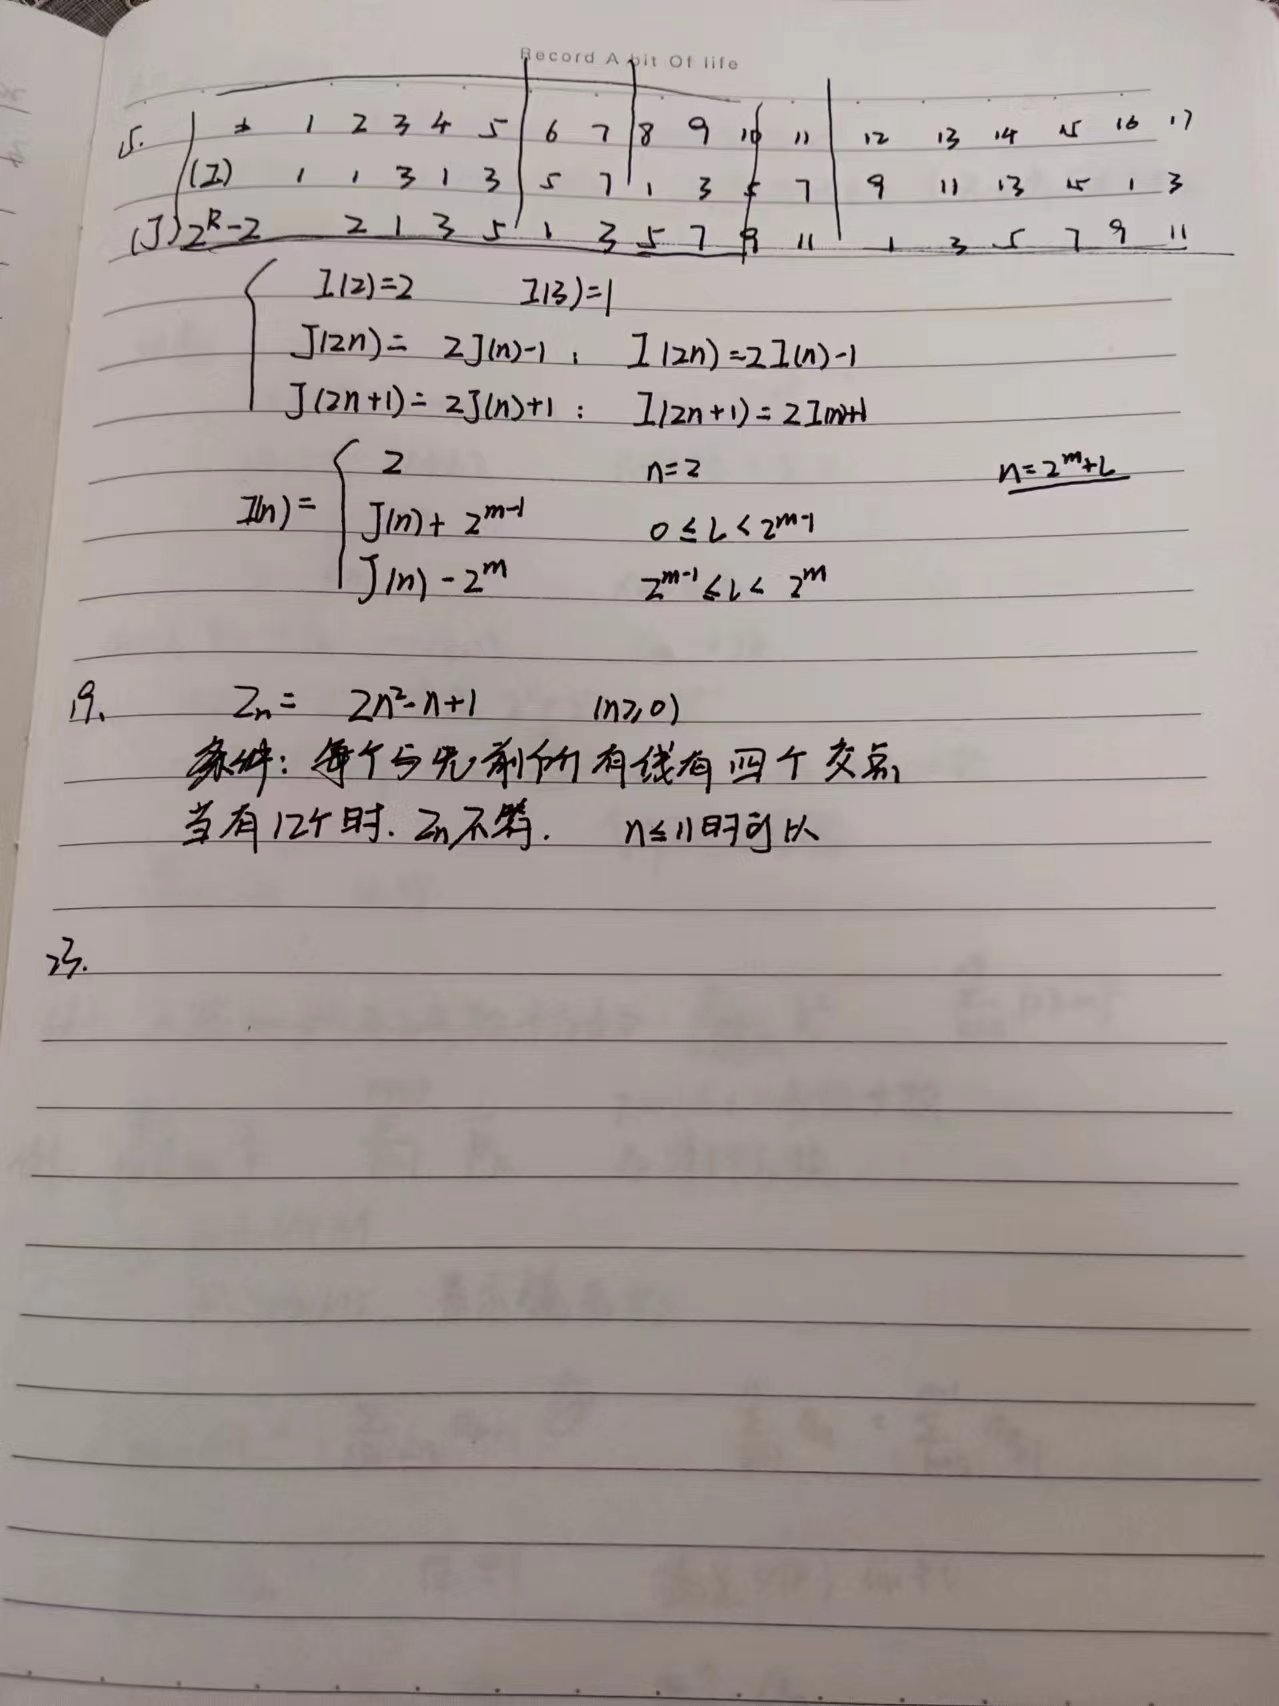 Record A bit Of life
15. 1 2 3 4 5 6 7 8 9 10 11 12 13 14 15 16 17
(I) 1 1 3 1 3 5 7 1 3 5 7 9 11 13 15 1 3
(J) 2^k-2 2 1 3 5 1 3 5 7 9 11 1 3 5 7 9 11
I(2)=2 I(3)=1
J(2n)= 2J(n)-1 ; I(2n)=2I(n)-1
J(2n+1)= 2J(n)+1 ; I(2n+1)=2I(n)+1
2 n=2 n=2^m+L
I(n)= J(n)+2^{m-1} 0≤L<2^{m-1}
J(n)-2^m 2^{m-1}≤L<2^m
19. Zn= 2n²-n+1 (n≥0)
条件: 每个与先前所有线有四个交点
当有12个时. Zn不等. n≤11时可以
23.